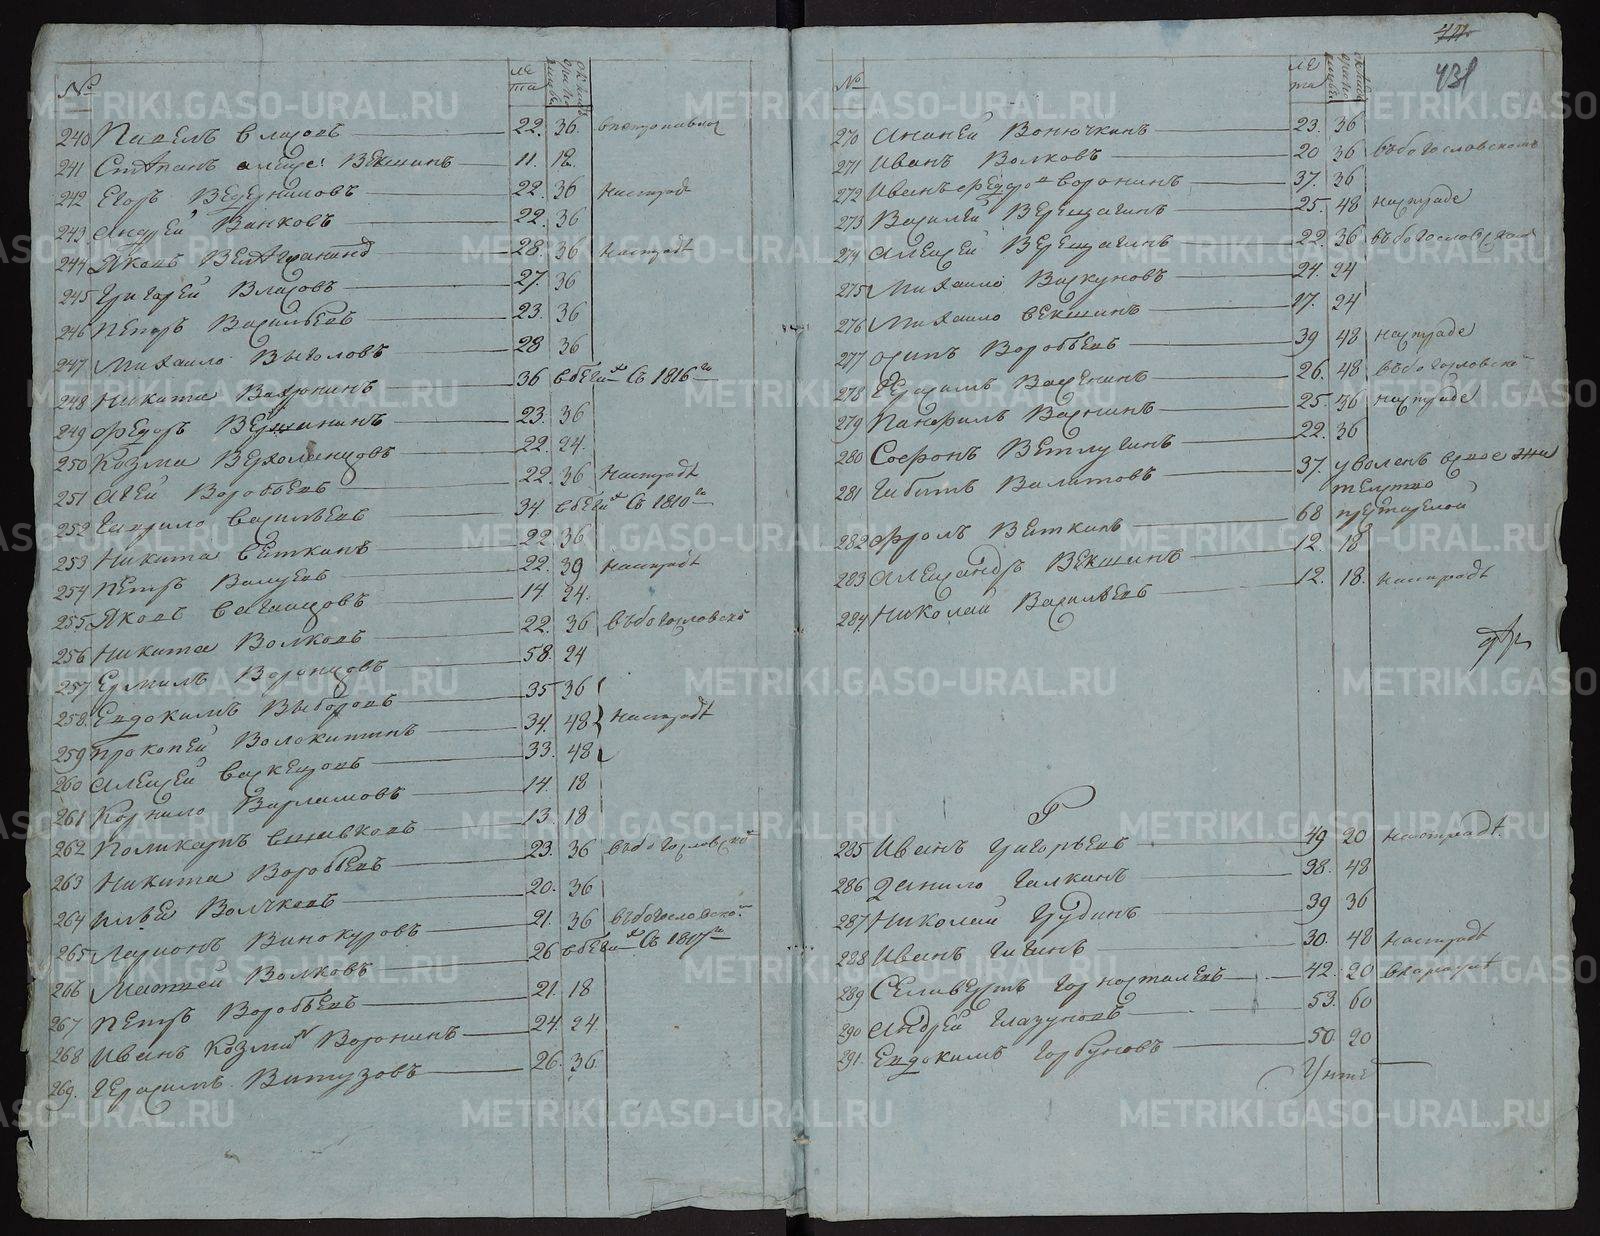 № лета
240 Павелъ Власовъ 22. 36
241 Степанъ Векшинъ 11. 18
242 Егоръ Ведерниковъ 22. 36 настрадѣ
243 Андрей Ванковъ 22. 36
244 Яковъ 28. 36 настрадѣ
245 Григорей Власовъ 27. 36
246 Петръ Васильевъ 23. 36
247 Михаило Выголовъ 28 36
248 Никита 36 вбегахъ съ 1816го
249 Федоръ 23. 36
250 Козма Верхоланцовъ 22. 24.
251 Агей Воробьевъ 22. 36 настрадѣ
252 Гаврило Васильевъ 34 вбегахъ съ 1810го
253 Никита Веткинъ 22. 36
254 Петръ Валуевъ 22. 39 настрадѣ
255 Яковъ 14 24.
256 Никита Волковъ 22. 36 въбогословской
257 Ермилъ Воронцовъ 58. 24
258. Евдокимъ Выборовъ 35 36
259 Прокопей Волокитинъ 34. 48 настрадѣ
260 Алексей 33. 48
261 Корнило Варламовъ 14. 18
262 Поликарпъ Вшивковъ 13. 18
263 Никита Воробьевъ 23. 36 въбогословской
264 Илья Волчковъ 20. 36
265 Ларионъ Винокуровъ 21. 36 въбогословской
266 Матвей Волковъ 26 вбегахъ съ 1817го
267 Петръ Воробьевъ 21. 18
268 Иванъ Козмин Воронинъ 24. 24
269. Герасимъ Витузовъ 26. 36.
431
№ лета
270 Ананей Вонючкинъ 23. 36
271 Иванъ Волковъ 20 36 въбогословскомъ
272 Иванъ Федоров Воронинъ 37. 36
273 Василей Верещагинъ 25. 48 настраде
274 Алексей Верещагинъ 22. 36 въбогословском
275 Михаило Варкуновъ 24. 24
276 Михаило Векшинъ 17. 24
277 Осипъ Воробьевъ 39 48 настраде
278 Герасимъ Васенинъ 26. 48 въбогословско
279 Панфилъ Васнинъ 25. 36 настраде
280 Софронъ Ветлугинъ 22. 36
281 Габитъ Валитовъ 37. уволенъ
тельство
282 Фролъ Веткинъ 68 престарелой
283 Александръ Векшинъ 12. 18
284 Николай Васильевъ 12. 18. настрадѣ
Г
285 Иванъ Григорьевъ 49 20 настрадѣ.
286 Данило Галкинъ 38. 48
287 Николай Грудинъ 39 36
288 Иванъ Гигинъ 30. 48 настрадѣ
289 Селиверстъ Горносталевъ 42. 20
290 Андрей Глазуновъ 53. 60
291. Евдокимъ Горбуновъ 50 20
METRIKI.GASO-URAL.RU